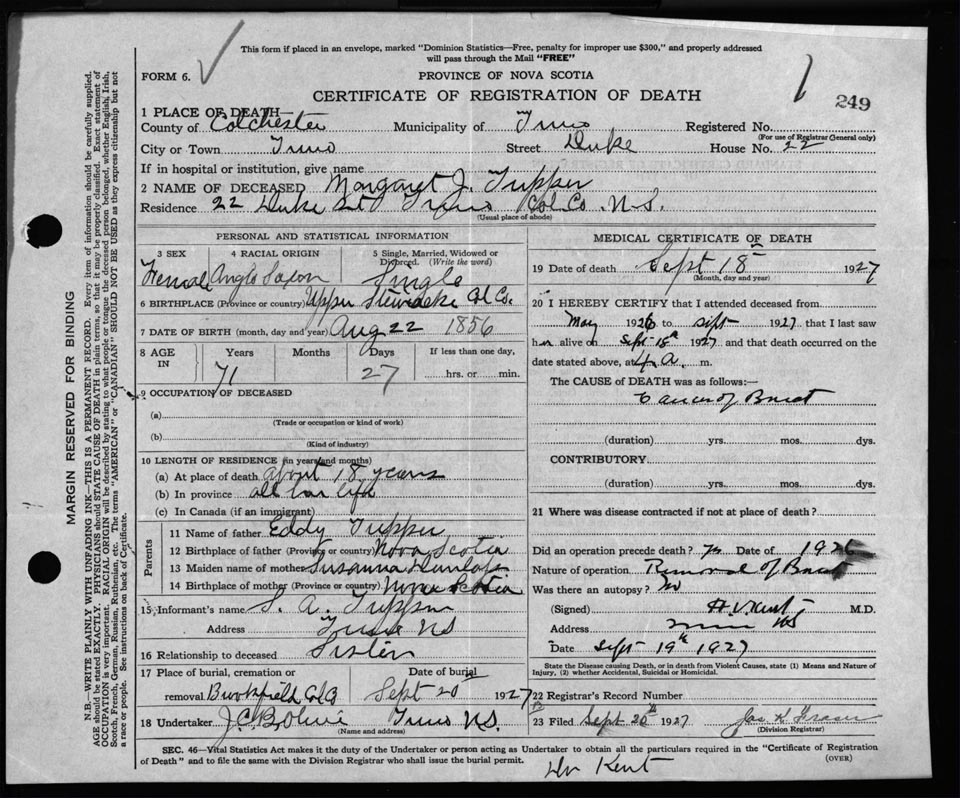 This form if placed in an envelope, marked "Dominion Statistics—Free, penalty for improper use $300," and properly addressed
will pass through the Mail "FREE"
FORM 6.
PROVINCE OF NOVA SCOTIA
CERTIFICATE OF REGISTRATION OF DEATH
249
1 PLACE OF DEATH
County of Colchester Municipality of Truro Registered No.
(For use of Registrar General only)
City or Town Truro Street Duke House No. 22
If in hospital or institution, give name
2 NAME OF DECEASED Margaret J. Tupper
Residence 22 Duke St Truro Col. Co. N.S.
(Usual place of abode)
PERSONAL AND STATISTICAL INFORMATION
3 SEX 4 RACIAL ORIGIN 5 Single, Married, Widowed or Divorced. (Write the word)
Female Anglo Saxon Single
6 BIRTHPLACE (Province or country) Upper Stewiacke Col Co.
7 DATE OF BIRTH (month, day and year) Aug 22 1856
8 AGE IN Years Months Days If less than one day,
71 27 hrs. or min.
9 OCCUPATION OF DECEASED
(a)
(Trade or occupation or kind of work)
(b)
(Kind of industry)
10 LENGTH OF RESIDENCE (in years and months)
(a) At place of death about 18 years
(b) In province all her life
(c) In Canada (if an immigrant)
Parents
11 Name of father Eddy Tupper
12 Birthplace of father (Province or country) Nova Scotia
13 Maiden name of mother Susanna Dunlap
14 Birthplace of mother (Province or country) Nova Scotia
15 Informant's name S. A. Tupper
Address Truro NS
16 Relationship to deceased Sister
17 Place of burial, cremation or removal Date of burial
Brookfield Col Co Sept 20th 1927
18 Undertaker J.C.B. Olive Truro N.S.
(Name and address)
MEDICAL CERTIFICATE OF DEATH
19 Date of death Sept 18th 1927
(Month, day and year)
20 I HEREBY CERTIFY that I attended deceased from
May 1926 to Sept 1927 that I last saw
her alive on Sept 18th 1927 and that death occurred on the
date stated above, at 4 a. m.
The CAUSE OF DEATH was as follows:—
Cancer of Breast
(duration) yrs. mos. dys.
CONTRIBUTORY
(duration) yrs. mos. dys.
21 Where was disease contracted if not at place of death?
Did an operation precede death? yes Date of 1926
Nature of operation Removal of Breast
Was there an autopsy? no
(Signed) H.V. Kent, M.D.
Address Truro NS
Date Sept 19th 1927
State the Disease causing Death, or in death from Violent Causes, state (1) Means and Nature of
Injury, (2) whether Accidental, Suicidal or Homicidal.
22 Registrar's Record Number
23 Filed Sept 20th 1927 Jas H Fraser
(Division Registrar)
SEC. 46—Vital Statistics Act makes it the duty of the Undertaker or person acting as Undertaker to obtain all the particulars required in the "Certificate of Registration
of Death" and to file the same with the Division Registrar who shall issue the burial permit.
(OVER)
Dr Kent
MARGIN RESERVED FOR BINDING
N.B.—WRITE PLAINLY WITH UNFADING INK—THIS IS A PERMANENT RECORD. Every item of information should be carefully supplied.
AGE should be stated EXACTLY. PHYSICIANS should STATE CAUSE OF DEATH in plain terms, so that it may be properly classified. Exact statement of
OCCUPATION is very important. RACIAL ORIGIN will be described by stating to what people or tongue the deceased person belonged, whether English, Irish,
Scotch, French, German, Russian, Ruthenian, etc. The terms "AMERICAN" or "CANADIAN" SHOULD NOT BE USED as they express citizenship but not
a race or people. See instructions on back of Certificate.